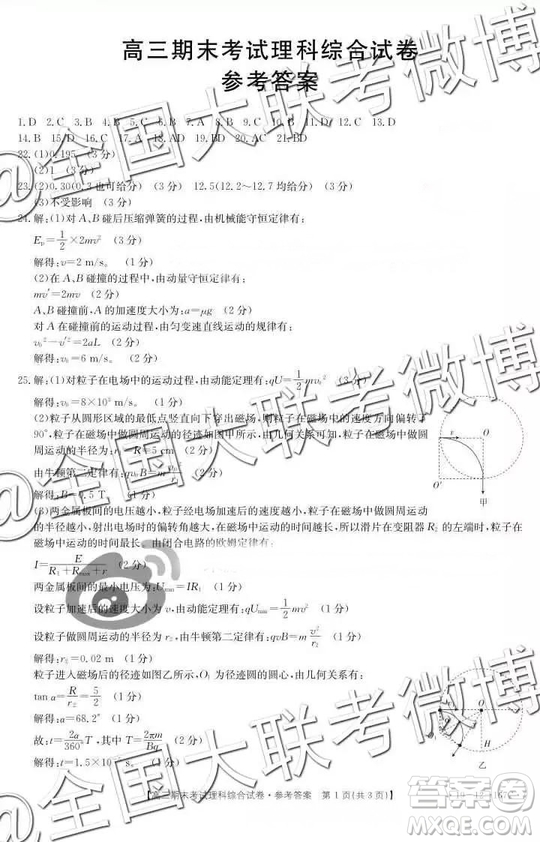 高三期末考试理科综合试卷
参考答案
1.D 2.C 3.B 7.C 8.D 13.D
14.B 15.D 18.A 19.BD 20.AC 21.BD
22.(1)0.195 (3分)
(2)1 (3分)
23.(2)0.30(0.3也可给分) 12.5(12.2～12.7均给分) (3分)
(3)不受影响 (3分)
24.解:(1)对A、B碰后压缩弹簧的过程,由机械能守恒定律有:
Eₚ=1/2×2mv² (3分)
解得:v=2 m/s。 (1分)
(2)在A、B碰撞的过程中,由动量守恒定律有:
mv′=2mv (2分)
A、B碰撞前,A的加速度大小为:a=μg (2分)
对A在碰撞前的运动过程,由匀变速直线运动的规律有:
v₀²－v′²=2aL (2分)
解得:v₀=6 m/s。 (2分)
25.解:(1)对粒子在电场中的运动过程,由动能定理有:qU=1/2mv₀² (3分)
解得:v₀=8×10⁵ m/s。 (2分)
(2)粒子从圆形区域的最低点竖直向下穿出磁场,则粒子在磁场中的速度方向偏转了
90°,粒子在磁场中做圆周运动的径迹如图甲所示,由几何关系可知,粒子在磁场中做圆周
运动的半径为:r₁=R=5 cm (2分)
由牛顿第二定律有:qv₀B=m v₀²/r₁ (2分)
解得:B=0.5 T。 (1分)
(3)两金属板间的电压越小,粒子经电场加速后的速度越小,粒子在磁场中做圆周运动
的半径越小,射出电场时的偏转角越大,在磁场中运动的时间越长,所以滑片在变阻器R₂的左端时,粒子在
磁场中运动的时间最长。由闭合电路的欧姆定律有:
I=E/(R₁+Rₘₐₓ+r) (1分)
两金属板间的最小电压为:Uₘᵢₙ=IR₁ (1分)
设粒子加速后的速度大小为v,由动能定理有:qUₘᵢₙ=1/2mv² (1分)
设粒子做圆周运动的半径为r₂,由牛顿第二定律有:qvB=m v²/r₂ (1分)
解得:r₂=0.02 m (1分)
粒子在磁场中运动的径迹如图乙所示,O₁为径迹圆的圆心,由几何关系有:
tan α=R/r₂=5/2 (1分)
解得:α=68.2° (1分)
故:t=2α/360° T (2分) T=2πm/Bq (2分)
甲
乙
【高三期末考试理科综合试卷·参考答案 第1页(共3页)】
@全国大联考微博
@全国大联考微博
@全国大联考微博
答案圈